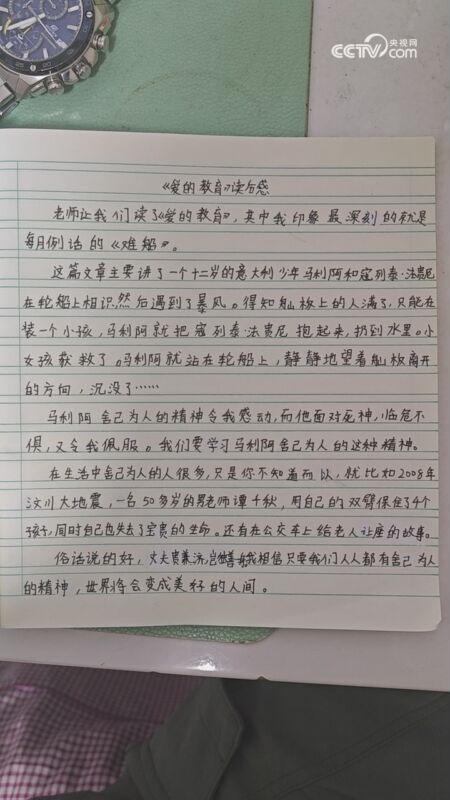 CCTV 央视网
.com
《爱的教育》读后感
老师让我们读了《爱的教育》，其中我印象最深刻的就是
每月例话的《难船》。
这篇文章主要讲了一个十二岁的意大利少年马利阿和寇列泰·法贵尼
在轮船上相识，然后遇到了暴风。得知舢板上的人满了，只能在
装一个小孩，马利阿就把寇列泰·法贵尼抱起来，扔到水里。小
女孩获救了。马利阿就站在轮船上，静静地望着舢板离开
的方向，沉没了……
马利阿舍己为人的精神令我感动，而他面对死神，临危不
惧，又令我佩服。我们要学习马利阿舍己为人的这种精神。
在生活中舍己为人的人很多，只是你不知道而以，就比如2008年
汶川大地震，一名50多岁的男老师谭千秋，用自己的双臂保住了4个
孩子，同时自己也失去了宝贵的生命。还有在公交车上给老人让座的故事。
俗话说的好，丈夫贵兼济，岂我相信只要我们人人都有舍己为人
的精神，世界将会变成美好的人间。